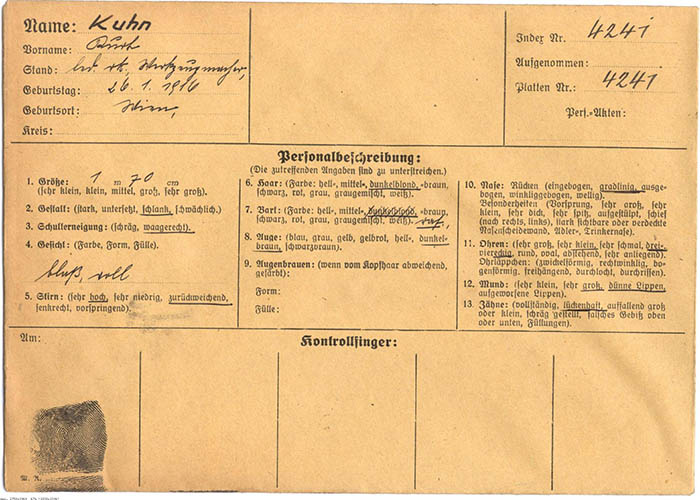 Name: Kuhn
Vorname: Kurt
Stand: led. rk, Werkzeugmacher,
Geburtstag: 26. 1. 1916
Geburtsort: Wien,
Kreis:
Index Nr. 4241
Aufgenommen:
Platten Nr.: 4241
Pers.-Akten:
Personalbeschreibung:
(Die zutreffenden Angaben sind zu unterstreichen.)
1. Größe: 1 m 70 cm
(sehr klein, klein, mittel, groß, sehr groß).
2. Gestalt: (stark, untersetzt, schlank, schwächlich.)
3. Schulterneigung: (schräg, waagerecht).
4. Gesicht: (Farbe, Form, Fülle).
blaß, voll
5. Stirn: (sehr hoch, sehr niedrig, zurückweichend,
senkrecht, vorspringend).
6. Haar: (Farbe: hell-, mittel-, dunkelblond, -braun,
schwarz, rot, grau, graugemischt, weiß).
7. Bart: (Farbe: hell-, mittel-, dunkelblond, -braun,
schwarz, rot, grau, graugemischt, weiß).
8. Auge: (blau, grau, gelb, gelbrot, hell-, dunkel-
braun, schwarzbraun).
9. Augenbrauen: (wenn vom Kopfhaar abweichend,
gefärbt):
Form:
Fülle:
10. Nase: Rücken (eingebogen, gradlinig, ausge-
bogen, winkliggebogen, wellig).
Besonderheiten (Vorsprung, sehr groß, sehr
klein, sehr dick, sehr spitz, aufgestülpt, schief
(nach rechts, links), stark sichtbare oder verdeckte
Nasenscheidewand, Adler-, Trinkernase).
11. Ohren: (sehr groß, sehr klein, sehr schmal, drei-,
viereckig, rund, oval, abstehend, sehr anliegend).
Ohrläppchen: (zwickelförmig, rechtwinklig, bo-
genförmig, freihängend, durchlocht, durchrissen).
12. Mund: (sehr klein, sehr groß, dünne Lippen,
aufgeworfene Lippen).
13. Zähne: (vollständig, lückenhaft, auffallend groß
oder klein, schräg gestellt, falsches Gebiß oben
oder unten, Füllungen).
Am:
Kontrollfinger: